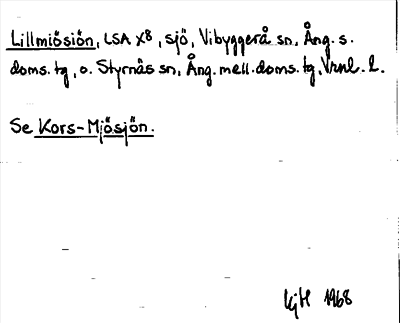 Lillmiösiön, LSA X8, sjö, Vibyggerå sn, Ång. s.
doms. tg, o. Styrnäs sn, Ång. mell. doms. tg, Vrnl. l.
Se Kors-Mjösjön.
KjH 1968